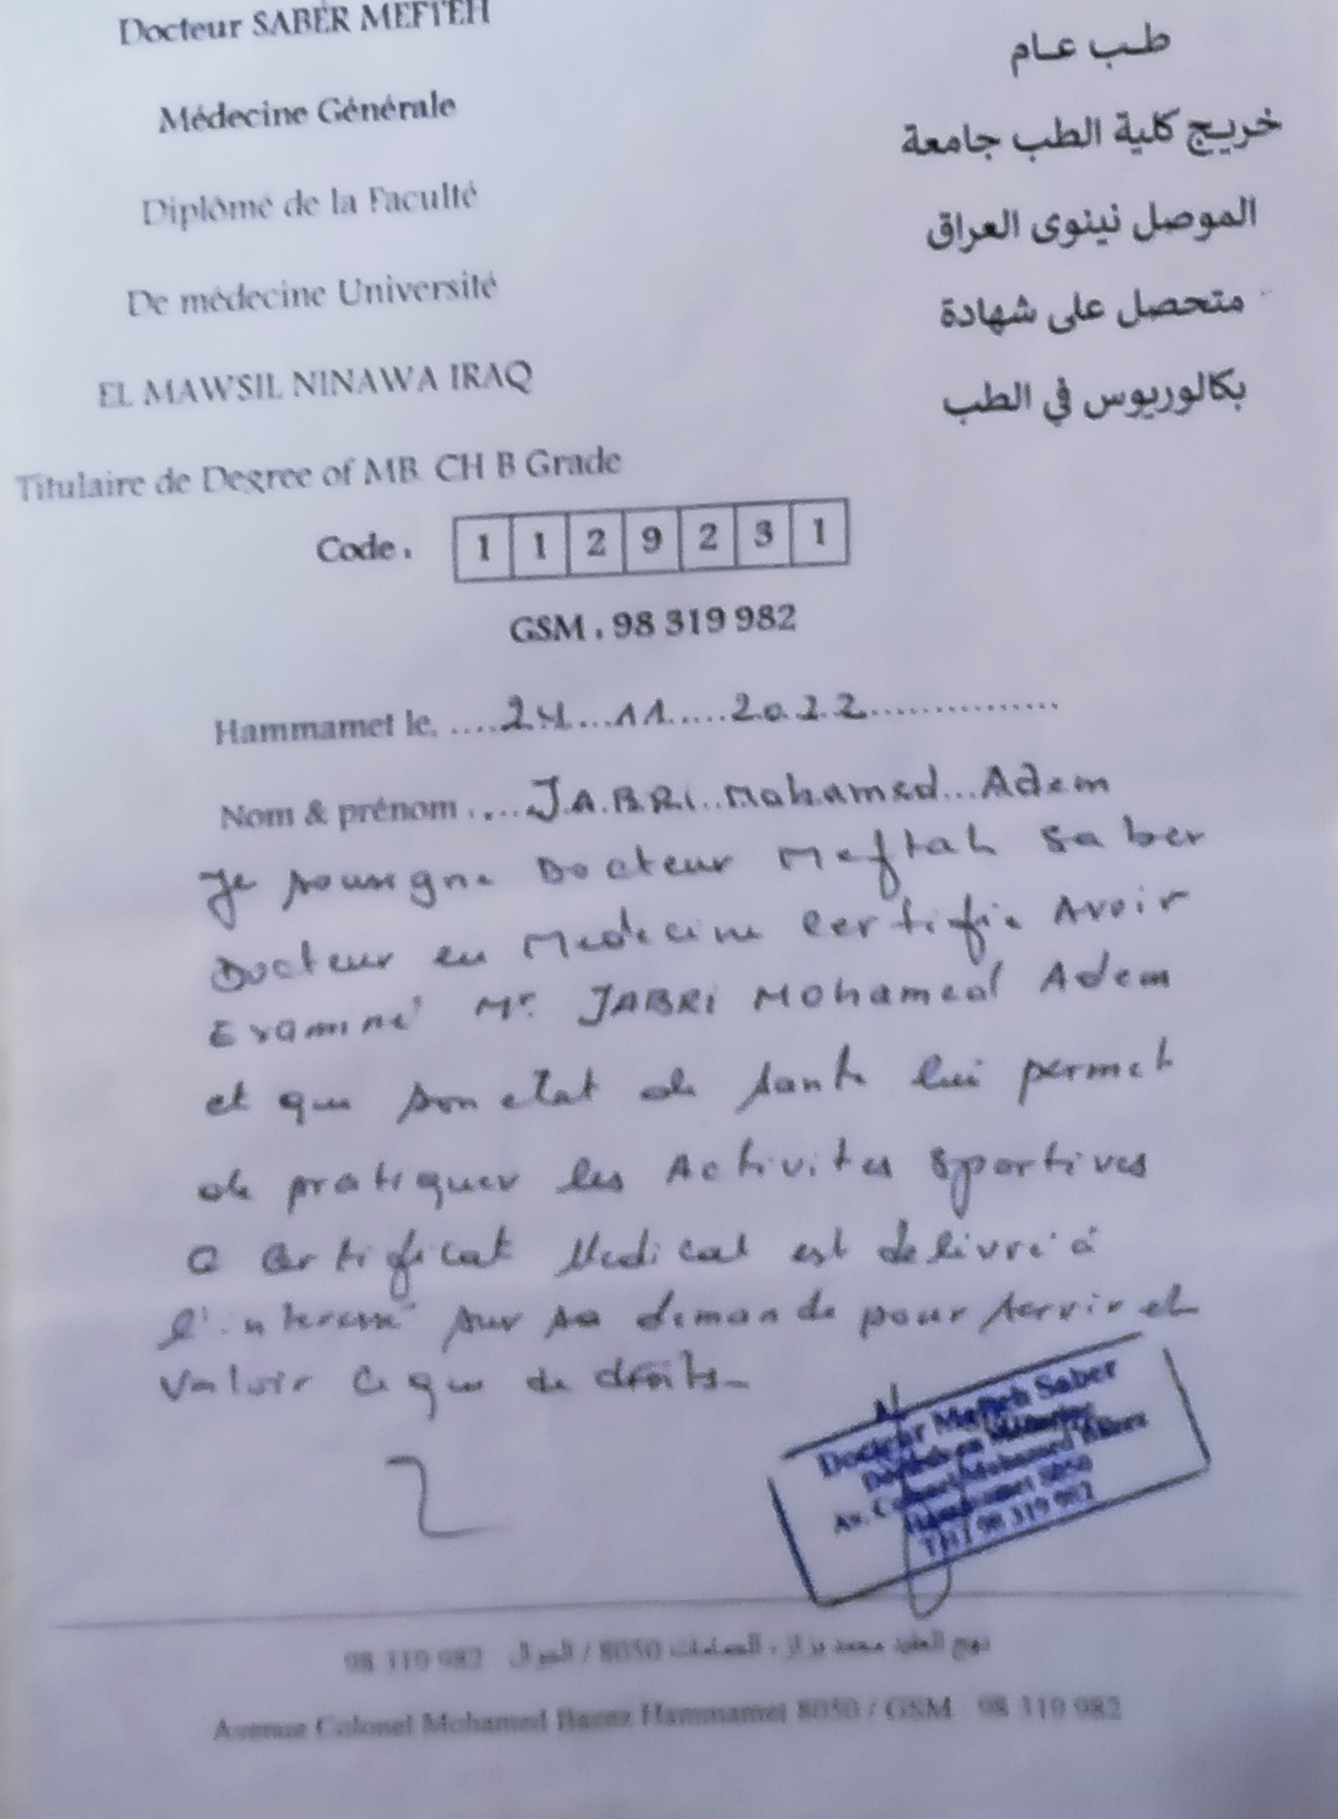 Docteur SABER MEFTEH
Médecine Générale
Diplômé de la Faculté
De médecine Université
EL MAWSIL NINAWA IRAQ
Titulaire de Degree of MB. CH B Grade
طب عام
خريج كلية الطب جامعة
الموصل نينوى العراق
متحصل على شهادة
بكالوريوس في الطب
Code : 1 1 2 9 2 3 1
GSM : 98 319 982
Hammamet le, ....24...11.....2022...............
Nom & prénom :....JABRI..Mohamed...Adem
Je soussigne Docteur Meftah Saber
Docteur en Medecine Certifie Avoir
Examiné Mr. JABRI Mohamed Adem
et que son etat de sante lui permet
de pratiquer les Activites Sportives
Ce Certificat Medical est delivré à
l'interessé sur sa demande pour servir et
valoir ce que de droits_
Docteur Mefteh Saber
Docteur en Médecine
Av. Colonel Mohamed
Hammamet 8050
Tél : 98 319 982
نهج العقيد محمد براز ، الحمامات 8050 / الجوال 98 319 982
Avenue Colonel Mohamed Barez Hammamet 8050 / GSM 98 319 982